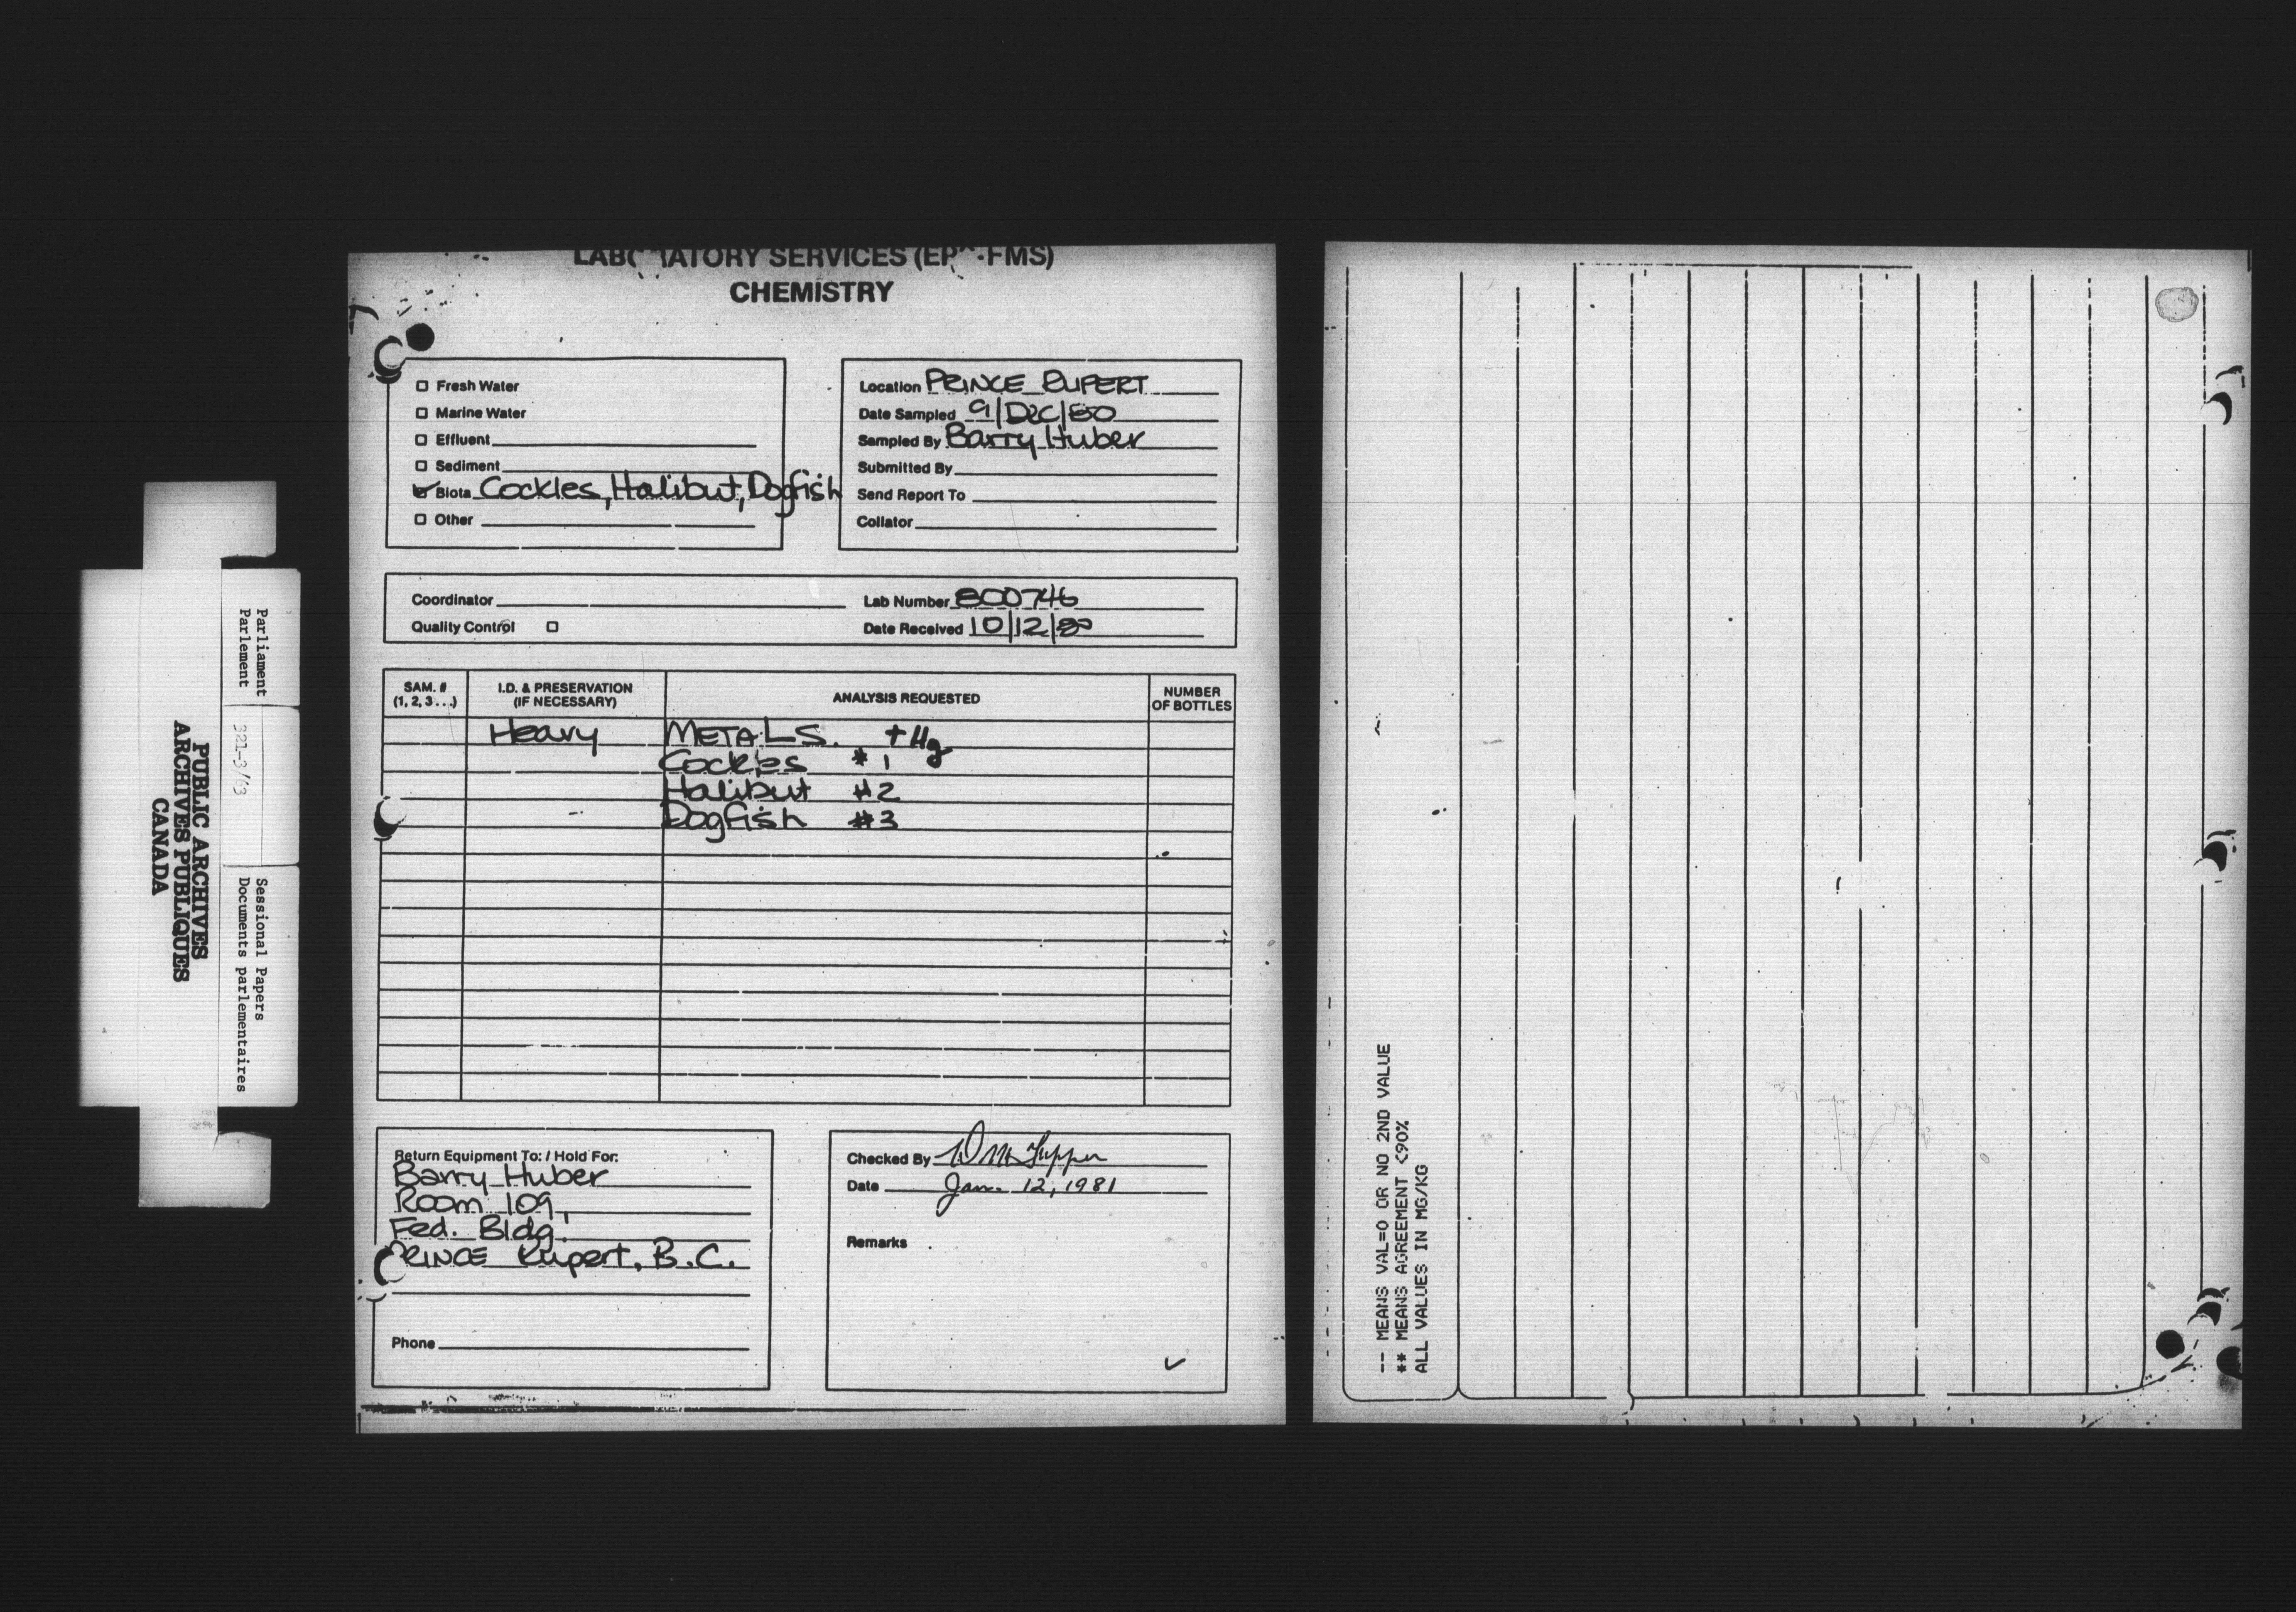 PUBLIC ARCHIVES
ARCHIVES PUBLIQUES
CANADA
Parliament
Parlement
321-3/63
Sessional Papers
Documents parlementaires
SERVICES
CHEMISTRY
Fresh Water
Marine Water
Effluent
Sediment
Biota Cockles, Halibut, Dogfish
Other
Location PRINCE RUPERT
Date Sampled 9/Dec/80
Sampled By Barry Huber
Submitted By
Send Report To
Collator
Coordinator
Quality Control
Lab Number 800746
Date Received 10/12/80
SAM. #
(1, 2, 3 . . .)
I.D. & PRESERVATION
(IF NECESSARY)
ANALYSIS REQUESTED
NUMBER
OF BOTTLES
Heavy METALS. + Hg
Cockles #1
Halibut #2
Dogfish #3
Return Equipment To: / Hold For:
Barry Huber
Room 109,
Fed. Bldg.
PRINCE Rupert, B.C.
Phone
Checked By
Date Jan. 12, 1981
Remarks
-- MEANS VAL=0 OR NO 2ND VALUE
** MEANS AGREEMENT <90%
ALL VALUES IN MG/KG